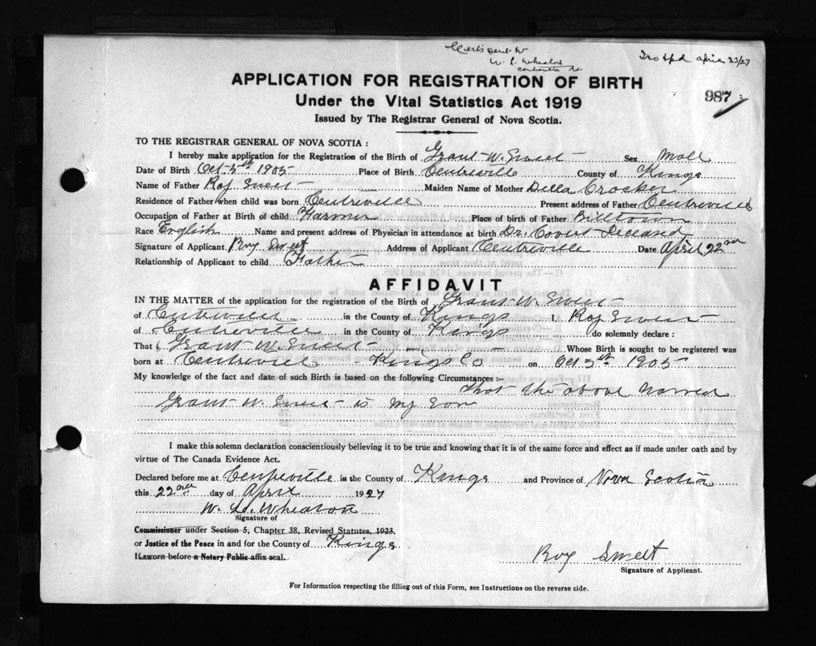 Cert sent to
W. D. Wheaton
april 23/27
APPLICATION FOR REGISTRATION OF BIRTH
987
Under the Vital Statistics Act 1919
Issued by The Registrar General of Nova Scotia.
TO THE REGISTRAR GENERAL OF NOVA SCOTIA :
I hereby make application for the Registration of the Birth of Grant W. Sweet Sex Male
Date of Birth Oct 5th 1905 Place of Birth Centreville County of Kings
Name of Father Roy Sweet Maiden Name of Mother Della Crocker
Residence of Father when child was born Centreville Present address of Father Centreville
Occupation of Father at Birth of child Farmer Place of birth of Father Billtown
Race English Name and present address of Physician in attendance at birth Dr. Covert Deceased
Signature of Applicant Roy Sweet Address of Applicant Centreville Date April 22nd
Relationship of Applicant to child Father
AFFIDAVIT
IN THE MATTER of the application for the registration of the Birth of Grant W. Sweet
of Centreville in the County of Kings I, Roy Sweet
of Centreville in the County of Kings do solemnly declare :
That Grant W. Sweet Whose Birth is sought to be registered was
born at Centreville Kings Co on Oct 5th 1905
My knowledge of the fact and date of such Birth is based on the following Circumstances :-
That the above named
Grant W. Sweet is my son
I make this solemn declaration conscientiously believing it to be true and knowing that it is of the same force and effect as if made under oath and by
virtue of The Canada Evidence Act.
Declared before me at Centreville in the County of Kings and Province of Nova Scotia
this 22nd day of April 1927
W. D. Wheaton
Signature of
Commissioner under Section 5, Chapter 38, Revised Statutes, 1923,
or Justice of the Peace in and for the County of Kings
If sworn before a Notary Public affix seal.
Roy Sweet
Signature of Applicant.
For Information respecting the filling out of this Form, see Instructions on the reverse side.